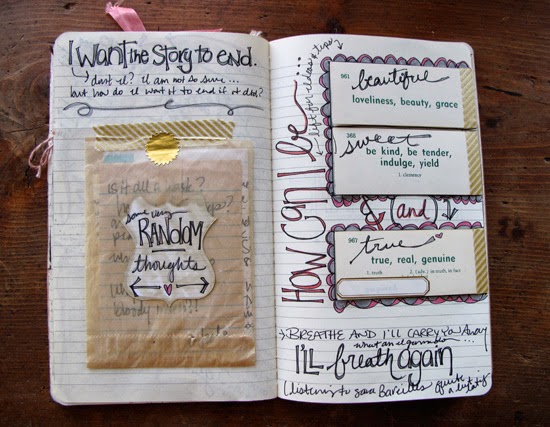 I WANT THE STORY TO END.
dont I? I am not so sure...
but how do I want it to end if it did?
is it all a
bloody
some very
RANDOM
thoughts
HOW CAN I be...
left for
961
beautiful
loveliness, beauty, grace
388
sweet
be kind, be tender,
indulge, yield
1. clemency
and
960
true
true, real, genuine
1. truth 2. (adv.) in truth, in fact
BREATHE AND I'LL CARRY YOU AWAY
what an
I'LL breath again
(listening to sara Bareilles quite
a bit lately